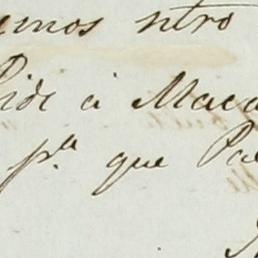 emos ntro
Pide á Maca
pª que Pa